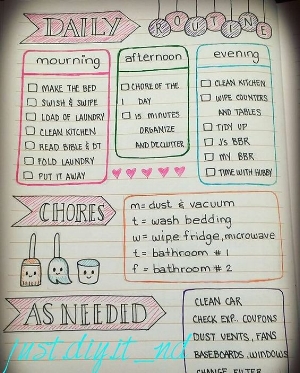 DAILY ROUTINE
mourning
MAKE THE BED
SWISH & SWIPE
LOAD OF LAUNDRY
CLEAN KITCHEN
READ BIBLE & DT
FOLD LAUNDRY
PUT IT AWAY
afternoon
CHORE OF THE
DAY
15 MINUTES
ORGANIZE
AND DECLUTTER
evening
CLEAN KITCHEN
WIPE COUNTERS
AND TABLES
TIDY UP
J's BBR
MY BBR
TIME WITH HUBBY
CHORES
m= dust & vacuum
t = wash bedding
w = wipe fridge, microwave
t = bathroom #1
f = bathroom #2
AS NEEDED
CLEAN CAR
CHECK EXP. COUPONS
DUST VENTS, FANS
BASEBOARDS, WINDOWS
CHANGE FILTER
just.diy.it_nd